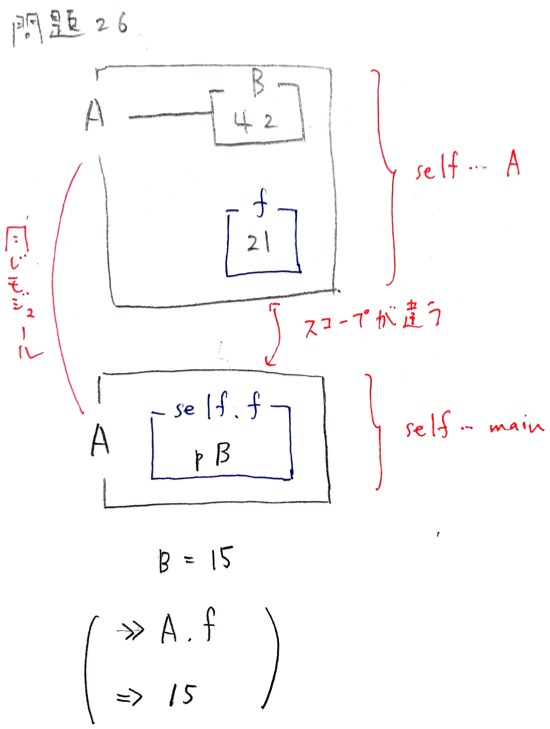 問題26
B
A
42
self… A
f
21
同じモジュール
スコープが違う
self.f
A
p B
self… main
B = 15
>> A.f
=> 15